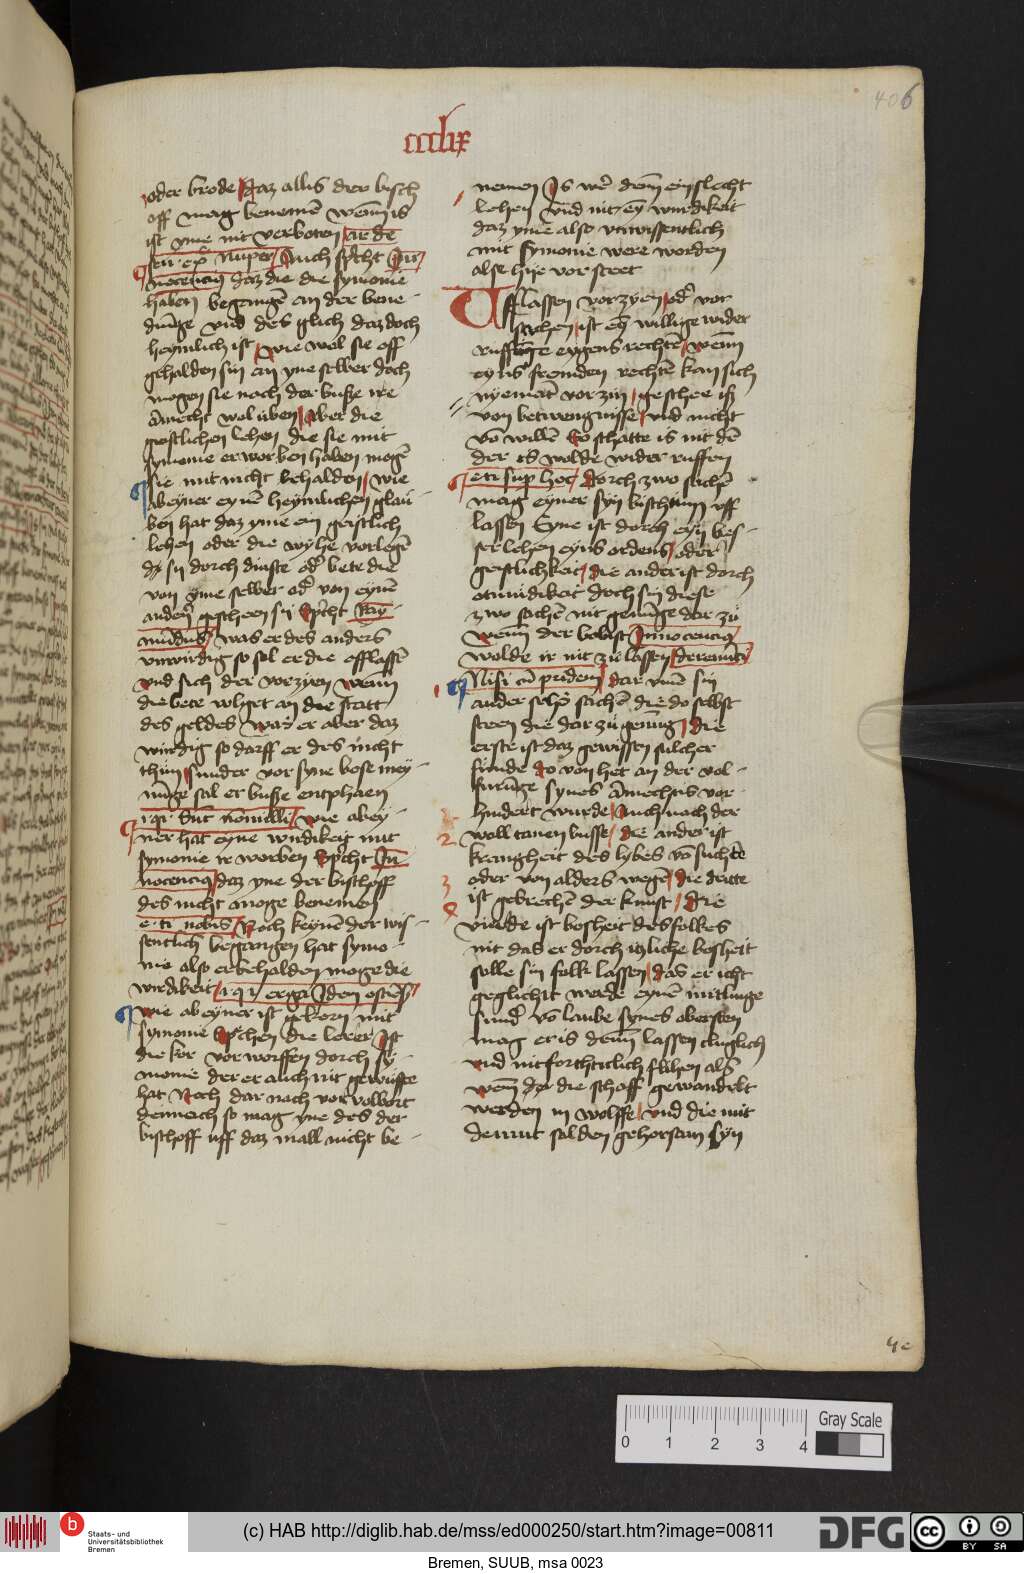 406
ccclix
oder brode daz allis der bisch
off mag benemē wenn is
ist yme nit verboten ar de
sen ex nuper Auch spcht In
nocencius daz die die symonie
haben begangē an der bene
dunge vnd des glich daz doch
heymlich ist wie wol sie off
gehalden sin an yme selber doch
mogen sie noch der busze ire
ammecht wol vben aber die
geistlichen lehen die sie mit
symonie erworben haben mogē
sie mit nicht behalden wie
abeyner eynē heymlichen glau
ben hat daz yme ein geistlich
lehen oder die wyhe vorlegē
dz sy dorch dinste odˀ bete die
von yme selber odˀ von eynē
andern gescheen si spcht Ray
mūdus was er des anders
vnwirdig so sal er die offlassē
vnd sich der vorzyen wenn
die bete whret an die statt
des geldes was er aber daz
wirdig so darff er des nicht
thun sunder vor syne bose mey
nūge sal er busse entphaen
i q i Sūt nōnulli wie abey
ner hat eyne wirdikeit mit
symonie irworben spcht In
nocencius daz yne der bisthoff
des nicht moge benemen
e ti nobis Noch keynē der wis
sentlich begangen hat symo
nie also er behalden moge die
wirdikeit i q i erga Iden ostēs
wie ab eyner ist gekorn mit
symonie Sprechen die lerer Ist
die kor vorworffen dorch sy
monie der er auch nit gewuste
hat Noch dar nach vorvolbort
dennoch so mag yne des der
bischoff uff daz mall nicht be
nemen Is wˀ denn ein slecht
lehen vnd nit ey wirdikeit
daz yme also vnwissentlich
mit symonie were worden
alse hie vor steet
Uff lassen vorzyen odˀ vor
sachen ist ey willige wider
ruffunge eygens rechtē wenn
eyns fremden rechtē kan sich
nyemāt vorzin geschee iß
von betwengnisse vnd nicht
vō willē so schatte is nit dē
der es wolde wider ruffen
e ti sup hoc Dorch zwo sachē
mag eyner syn bischtum uff
lassen Eyne ist dorch eyn bes
ser lehen eyns ordens oder
geistlichkeit die ander ist dorch
otmudikeit doch sin diese
zwo sachē nit genuge dar zu
wenn der bobist Innocencius
wolde ir nit zu lassen de renūc
Nisi cū pridem dar vmē sin
ander sechs sachē die do selbst
steen die dar zu genug die
erste ist daz gewissen sulcher
sunde do von her an der vol
furūge synes ammechtis vor
hindert wurde Auch nach der
woll tanen busse die ander ist
2
krangheit des lybes vō suchte
oder von alders wegē die dritte
3
ist gebrechē der kunst die
4
vierde ist bosheit des folkes
nit das er dorch igliche bosheit
solle sin folk lassen das er icht
geglichit werde eynē mitlinge
sundˀ vō laube synes obersten
mag er is denn lassen cluglich
vnd nit forchticlich flihen als
wenn der die schoff gewandelt
werden in wolffe vnd die mit
demut solden gehorsam syn
0 1 2 3 4
Gray Scale
b
Staats- und
Universitätsbibliothek
Bremen
(c) HAB http://diglib.hab.de/mss/ed000250/start.htm?image=00811
DFG
cc BY SA
Bremen, SUUB, msa 0023